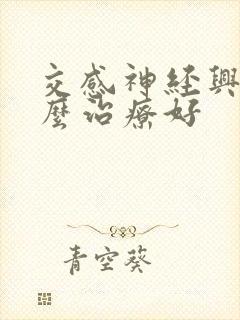 交感神经興
麼治療好
青空葵